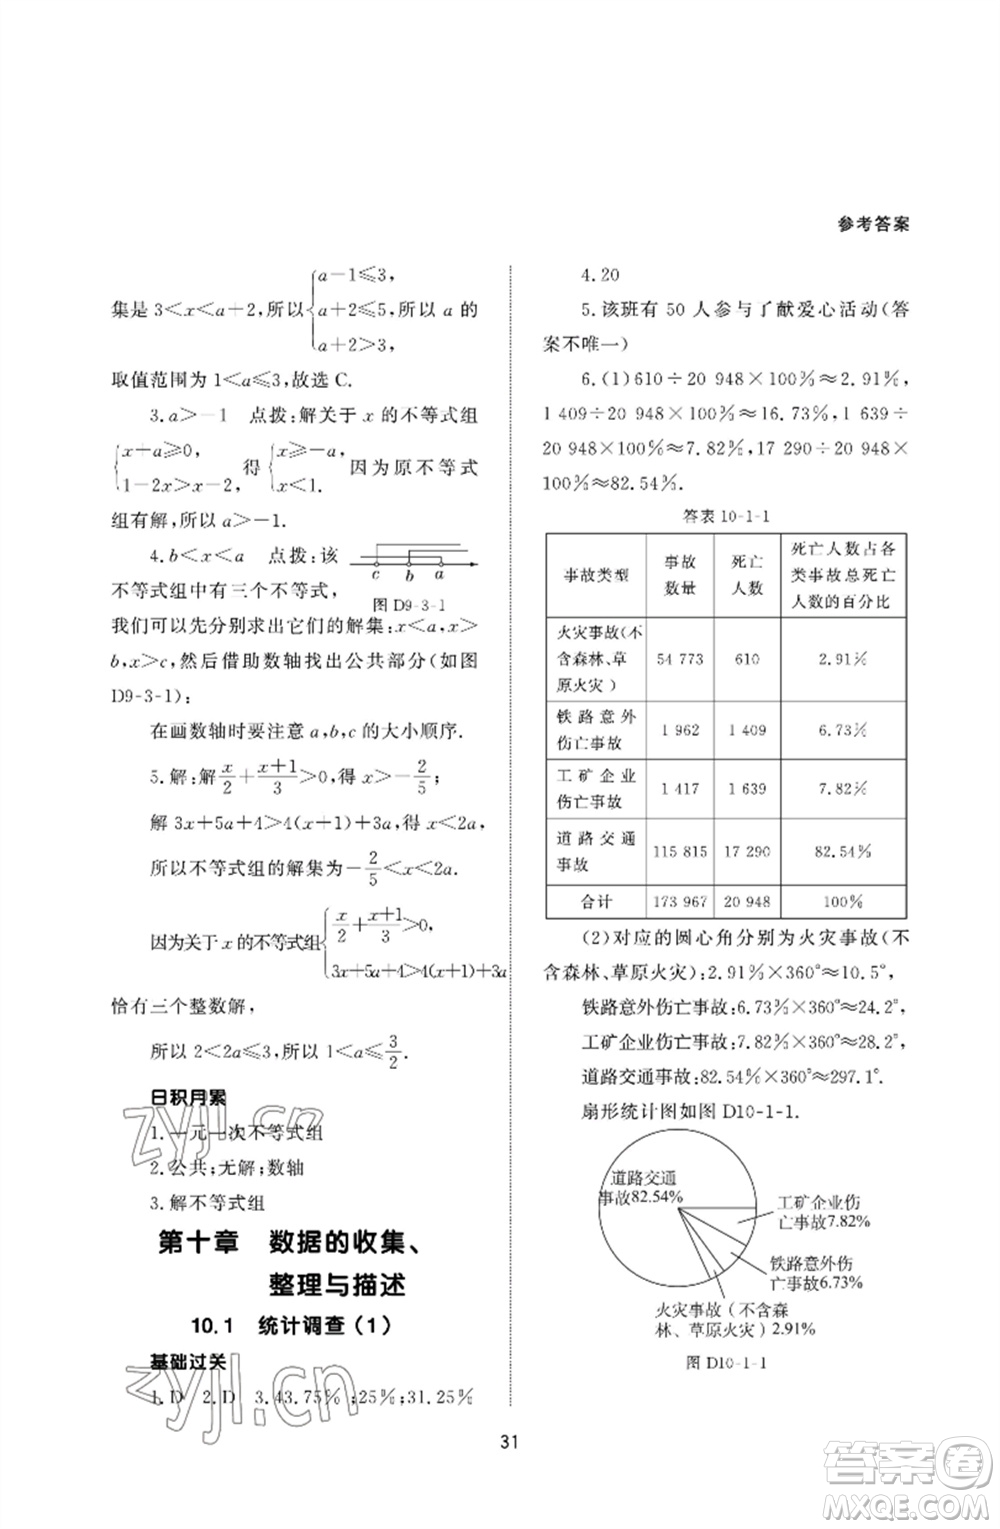 参考答案
集是 3<x<a+2,所以{a-1≤3, a+2≤5, a+2>3,所以 a 的
取值范围为 1<a≤3,故选 C.
3.a>-1 点拨:解关于 x 的不等式组
{x+a≥0, 1-2x>x-2, 得{x≥-a, x<1. 因为原不等式
组有解,所以 a>-1.
4.b<x<a 点拨:该
不等式组中有三个不等式,
c b a
图 D9-3-1
我们可以先分别求出它们的解集:x<a,x>
b,x>c,然后借助数轴找出公共部分(如图
D9-3-1):
在画数轴时要注意 a,b,c 的大小顺序.
5.解:解x/2+(x+1)/3>0,得 x>-2/5;
解 3x+5a+4>4(x+1)+3a,得 x<2a,
所以不等式组的解集为-2/5<x<2a.
因为关于 x 的不等式组{x/2+(x+1)/3>0, 3x+5a+4>4(x+1)+3a
恰有三个整数解,
所以 2<2a≤3,所以 1<a≤3/2.
日积月累
1.一元一次不等式组
2.公共;无解;数轴
3.解不等式组
第十章 数据的收集、
整理与描述
10.1 统计调查(1)
基础过关
1.D 2.D 3.43.75%;25%;31.25%
4.20
5.该班有 50 人参与了献爱心活动(答
案不唯一)
6.(1)610÷20 948×100%≈2.91%,
1 409÷20 948×100%≈16.73%,1 639÷
20 948×100%≈7.82%,17 290÷20 948×
100%≈82.54%.
答表 10-1-1
事故类型 事故数量 死亡人数 死亡人数占各类事故总死亡人数的百分比
火灾事故(不含森林、草原火灾) 54 773 610 2.91%
铁路意外伤亡事故 1 962 1 409 6.73%
工矿企业伤亡事故 1 417 1 639 7.82%
道路交通事故 115 815 17 290 82.54%
合计 173 967 20 948 100%
(2)对应的圆心角分别为火灾事故(不
含森林、草原火灾):2.91%×360°≈10.5°,
铁路意外伤亡事故:6.73%×360°≈24.2°,
工矿企业伤亡事故:7.82%×360°≈28.2°,
道路交通事故:82.54%×360°≈297.1°.
扇形统计图如图 D10-1-1.
道路交通
事故82.54%
工矿企业伤
亡事故7.82%
铁路意外伤
亡事故6.73%
火灾事故(不含森
林、草原火灾)2.91%
图 D10-1-1
31
zyjl.cn
zyjl.cn
答案圈
MXQE.COM